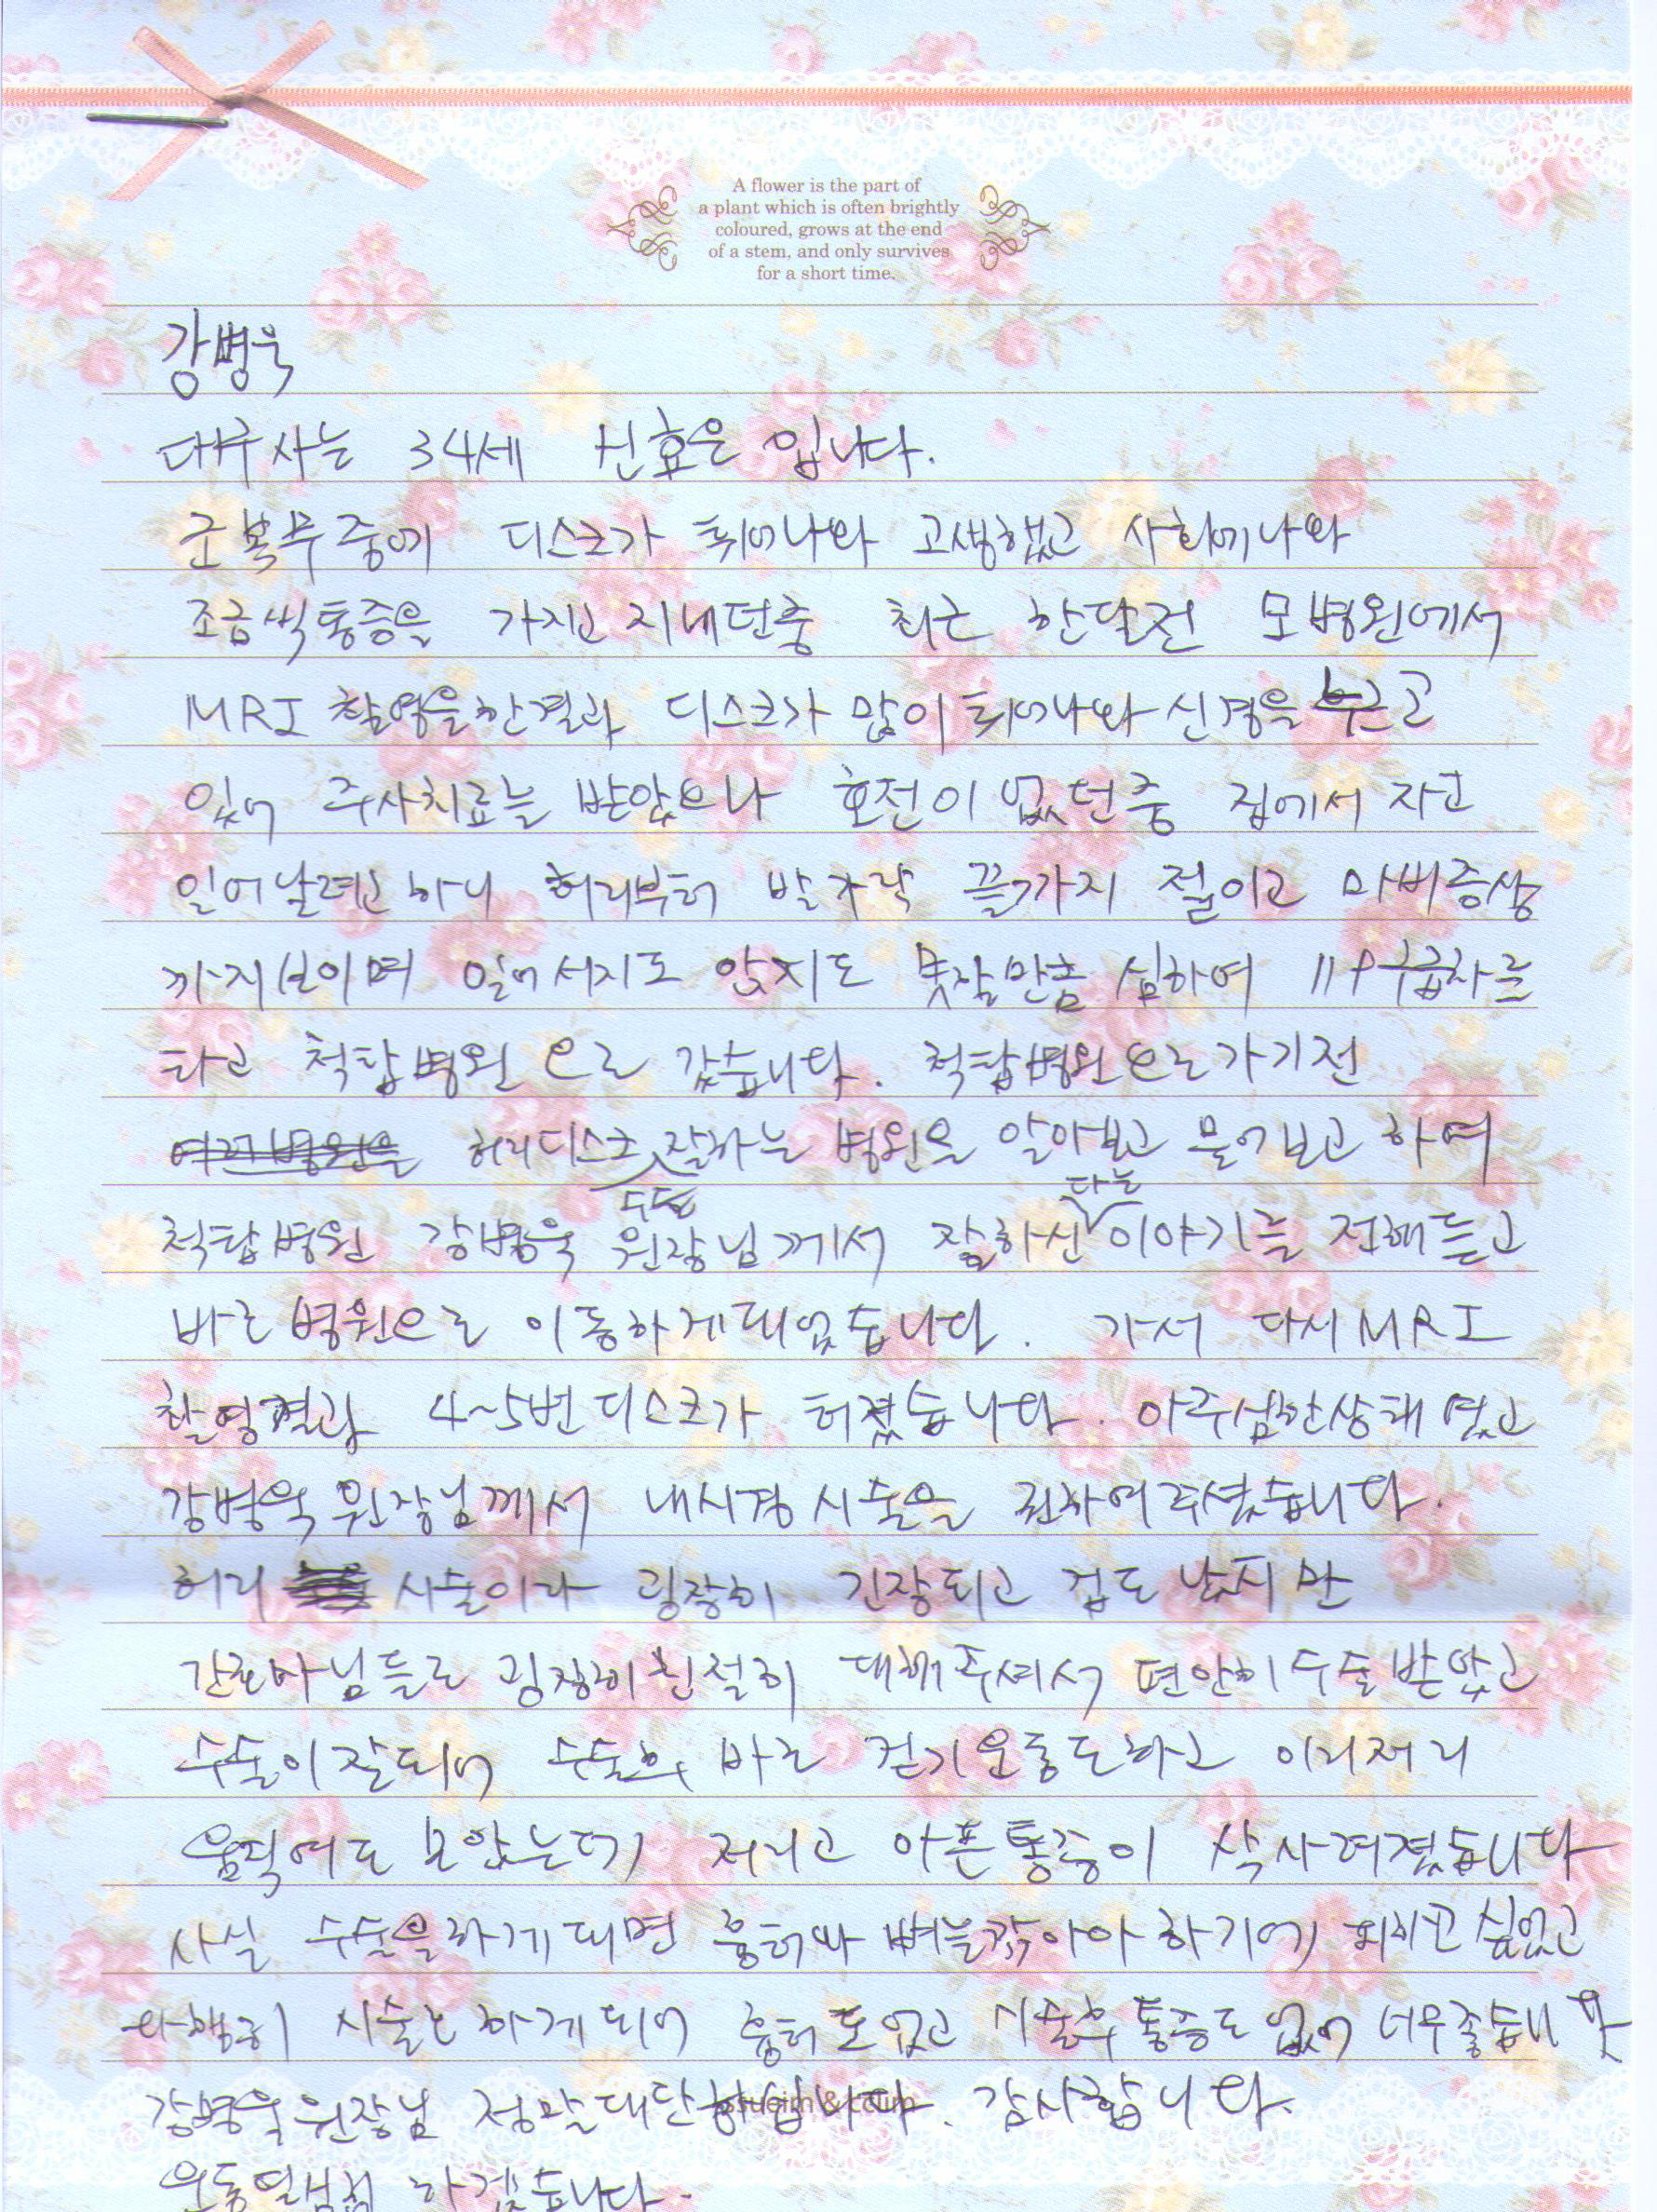 A flower is the part of
a plant which is often brightly
coloured, grows at the end
of a stem, and only survives
for a short time.
강병욱
대구사는 34세 신효은 입니다.
군복무중에 디스크가 튀어나와 고생했고 사회에나와
조금씩통증을 가지고 지내던중 최근 한달전 모병원에서
MRI 촬영을한결과 디스크가 많이 튀어나와 신경을 누르고
있어 주사치료를 받았으나 호전이 없던중 집에서 자고
일어날려고 하니 허리부터 발가락 끝까지 절이고 마비증상
까지보이며 일어서지도 앉지도 못할만큼 심하여 119구급차를
타고 척탑병원 으로 갔습니다. 척탑병원으로가기전
여러병원을 허리디스크 수술 잘하는 병원을 알아보고 물어보고 하여
척탑병원 강병욱 원장님께서 잘하신다는 이야기를 전해듣고
바로병원으로 이동하게되었습니다. 가서 다시MRI
촬영결과 4~5번디스크가 터졌습니다. 아주심한상태였고
강병욱원장님께서 내시경시술을 권하여주셨습니다.
허리 시술이라 굉장히 긴장되고 겁도 났지만
간호사님들도 굉장히친절히 대해주셔서 편안히수술받았고
수술이잘되어 수술후 바로 걷기운동도하고 이리저리
움직여도 보았는데 저리고 아픈통증이 싹사려졌습니다
사실 수술을하게되면 흉터와 뼈를깎아야 하기에 피하고싶었고
다행히 시술로 하게되어 흉터도없고 시술후통증도 없어 너무좋습니다
강병욱원장님 정말대단하십니다. 감사합니다.
issueim & coum
운동열심히 하겠습니다.